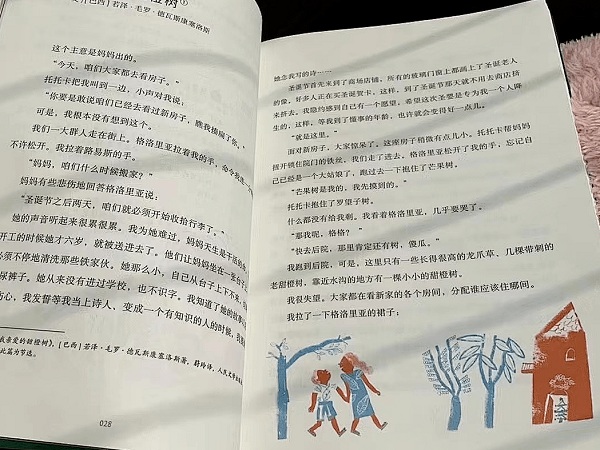 橙树①
文/[巴西]若泽·毛罗·德瓦斯康塞洛斯
这个主意是妈妈出的。
“今天，咱们大家都去看房子。”
托托卡把我叫到一边，小声对我说：
“你要是敢说咱们已经去看过新房子，瞧我揍扁了你。”
可是，我根本没有想到这个。
我们一大群人走在街上。格洛里亚拉着我的手，命令我一
不许松开。我拉着路易斯的手。
“妈妈，咱们什么时候搬家？”
妈妈有些悲伤地回答格洛里亚说：
“圣诞节之后两天，咱们就必须开始收拾行李了。”
她的声音听起来很累很累。我为她难过，妈妈天生是干活的
开工的时候她才六岁，就被送进去了。他们让妈妈坐在一张台子
必须不停地清洗那些铁家伙。她那么小，自己从台子上下不来，
尿裤子。她从来没有进过学校，也不识字。我知道了她的故事
伤心，我发誓等我当上诗人，变成一个有知识的人的时候，我要
我亲爱的甜橙树》，[巴西]若泽·毛罗·德瓦斯康塞洛斯著，蔚玲译，人民文学出版
此篇为节选。
028
她念我写的诗……
圣诞节首先来到了商场店铺，所有的玻璃门窗上都画上了圣诞老人
的像。好多人正在买圣诞贺卡，这样，到了圣诞节那天就不用去商店挤
来挤去。我隐约感到自己有一个愿望，希望这次圣婴是专为我一个人降
生的，这样，等我到了懂事的年龄，也许就会变得好一点儿。
“就是这里。”
面对新房子，大家惊呆了。这座房子稍微有点儿小。托托卡帮妈妈
拧开锁住院门的铁丝，我们走了进去。格洛里亚松开了我的手，忘记自
己已经是一个大姑娘了，跑过去一下抱住了芒果树。
“芒果树是我的。我先摸到的。”
托托卡抱住了罗望子树。
什么都没有给我剩。我看着格洛里亚，几乎要哭了。
“那我呢，格格？”
“快去后院，那里肯定还有树，傻瓜。”
我跑到后院，可是，这里只有一些长得很高的龙爪草、几棵带刺的
老甜橙树，靠近水沟的地方有一棵小小的甜橙树。
我很失望。大家都在看新家的各个房间，分配谁应该住哪间。
我拉了一下格洛里亚的裙子：